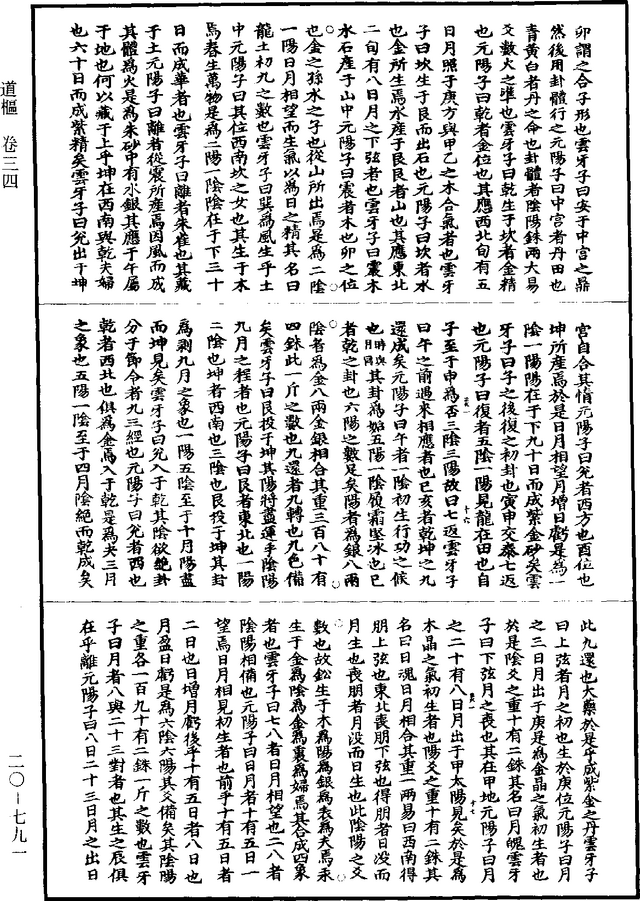 道樞　卷三四
卯謂之合子形也雲牙子曰安于中宫之鼎
然後用卦體行之元陽子曰中宫者丹田也
青黄白者丹之命也卦體者陰陽銖兩大易
爻數火之準也雲牙子曰乾生于坎者金精
也元陽子曰乾者金位也其應西北旬有五
日月照于庚方與甲乙之木合氣者也雲牙
子曰坎生于艮而出石也元陽子曰坎者水
也金所生焉水産于艮艮者山也其應東北
二旬有八日月之下弦者也雲牙子曰震木
水石產于山中元陽子曰震者木也卯之位
也金之孫水之子也從山所出焉是為二陰
一陽日月相望而生氣以為日之精其名曰
龍土初九之數也雲牙子曰巽為風生乎土
中元陽子曰其位西南坎之女也其生于木
焉春生萬物是為二陽一陰陰在于下三十
日而成華者也雲牙子曰離者朱雀也其藏
于土元陽子曰離者從震所産焉因風而成
其體為火是為朱砂中有水銀其應于午屬
于地也何以藏于上乎坤在西南與乾夫婦
也六十日而成紫精矣雲牙子曰兊出于坤
宫自合其情元陽子曰兊者西方也酉位也
坤所産焉於是日月相望月增日虧是為一
陰一陽陽在于下九十日而成紫金砂矣雲
牙子曰子之後復之初卦也寅申交泰七返
也元陽子曰復者五陰一陽見龍在田也自
子至于申為否三陰三陽故曰七返雲牙子
曰午之前過來相應者也巳亥者乾坤之九
還成矣元陽子曰午者一陰初生行功之候
也時與月同其卦為姤五陽一陰履霜堅冰也巳
者乾之卦也六陽之數足矣陽者為銀八兩
陰者為金八兩金銀相合其重三百八十有
四銖此一斤之數也九還者九轉也九色備
矣雲牙子曰艮投于坤其陽將盡運乎陰陽
九月之程者也元陽子曰艮者東北也一陽
二陰也坤者西南也三陰也艮投于坤其卦
為剥九月之象也一陽五陰至于十月陽盡
而坤見矣雲牙子曰兊入于乾其陰欲絶卦
分于節令者九三經也元陽子曰兊者西也
乾者西北也俱為金焉入于乾是為夬三月
之象也五陽一陰至于四月陰絶而乾成矣
此九還也大藥於是乎成紫金之丹雲牙子
曰上弦者月之初也生於庚位元陽子曰月
之三日月出于庚是為金晶之氣初生者也
於是陰爻之重十有二銖其名曰月魄雲牙
子曰下弦月之喪也其在甲地元陽子曰月
之二十有八日月出于甲太陽見矣於是為
木晶之氣初生者也陽爻之重十有二銖其
名曰日魂日月相合其重一兩易曰西南得
朋上弦也東北喪朋下弦也得朋者日没而
月生也喪朋者月没而日生也此陰陽之爻
數也故鈆生于木為陽為銀為表為夫焉汞
生于金為陰為金為裏為婦焉其合成四象
者也雲牙子曰七八者日月相望也二八者
陰陽相備也元陽子曰日月者十有五日一
望焉日月相見初生者也前乎十有五日者
二日也日增月虧後乎十有五日者八日也
月盈日虧是為六陰六陽其爻備矣其陰陽
之重各一百九十有二銖一斤之數也雲牙
子曰月者八與二十三對者也其生之辰俱
在乎離元陽子曰八日二十三日月之出日
二〇－七九一